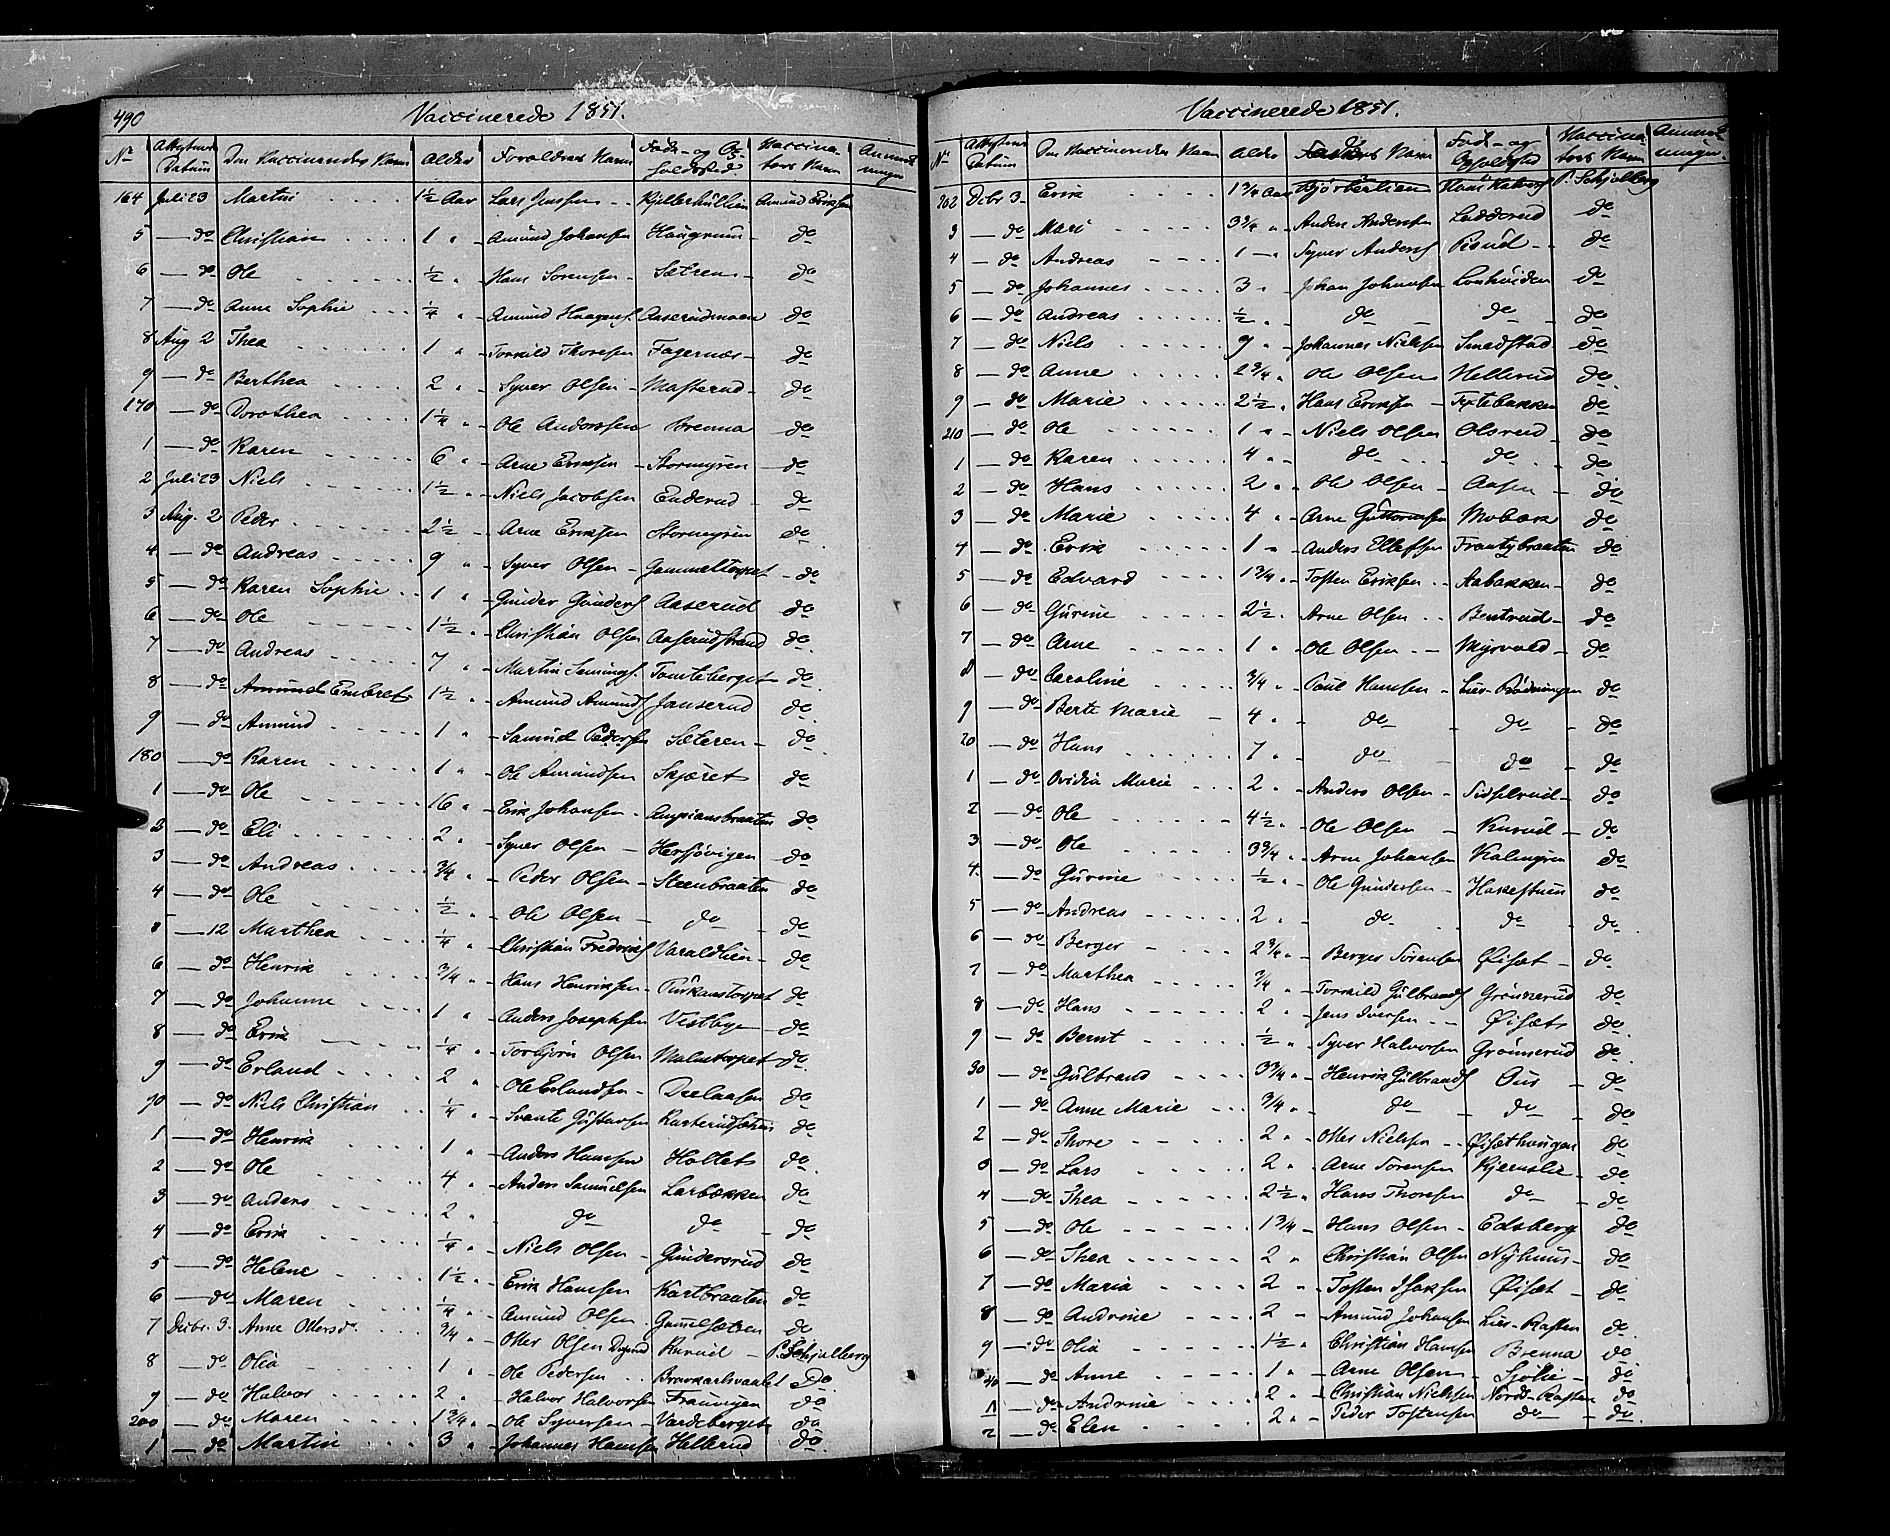 490
Vaccinerede 1851.
No Attestens Datum Den Vaccineredes Navn Alder Forældres Navn Føde- og Opholdssted Vaccinators Navn Anmærkninger
164 Juli 23 Martin 1½ Aar Lars Jensen Kjillerhüllien Amund Eriksen
5 — do Christian 1 " Amund Johansen Haugrum do
6 — do Ole ½ " Hans Sørensen Sætren do
7 — do Anne Sophie ¼ " Amund Haagens. Aaserudmoen do
8 Aug 2 Thea 1 " Torkild Thoresen Fagernæs do
9 — do Berthea 2 " Syver Olsen Masterud do
170 — do Dorothea 1¼ " Ole Anderssen Brenna do
1 — do Karen 6 " Arne Eriksen Stormyren do
2 Juli 23 Niels 1½ " Niels Jacobsen Enderud do
3 Aug. 2 Peder 2½ " Arne Eriksen Stormyren do
4 — do Andreas 9 " Syver Olsen Gammeltorpet do
5 — do Karen Sophie 1 " Gunder Gunders Aaserud do
6 — do Ole 1½ " Christian Olsen Aaserudstrand do
7 — do Andreas 7 " Martin Semings. Tomteberget do
8 — do Amund Embret 1½ " Amund Amunds Janserud do
9 — do Amund 1 " Samuel Pedersen Sæteren do
180 — do Karen 1 " Ole Amundsen Skjæret do
1 — do Ole 16 " Erik Johansen Ampiansbraaten do
2 — do Eli 2 " Syver Olsen Hersjøvigen do
3 — do Andreas ¾ " Peder Olsen Steenbraaten do
4 — do Ole ½ " Ole Olsen do do
5 — 12 Marthea ¼ " Christian Fredriks Varaldlien do
6 — do Henrik ¾ " Hans Henriksen Purkanstorpet do
7 — do Johanne 1 " Anders Josephsen Vestbye do
8 — do Erik ¼ " Torbjørn Olsen Malmtorpet do
9 — do Erland 2 " Ole Erlandsen do
90 — do Niels Christian ¼ " Svante Gustavsen do
1 — do Henrik 1 " Anders Hansen Holtet do
2 — do Ole 4 " Anders Samuelsen Larbækken do
3 — do Anders 2 " do do do
4 — do Erik ¼ " Niels Olsen Gundersrud do
5 — do Helene 1½ " Erik Hansen Kartbraaten do
6 — do Maren ¼ " Amund Olsen Gamelsætren do
7 Decbr. 3. Anne Ottersdr. ¾ " Otter Olsen Kurud P. Schjølberg
8 — do Olia 1 " Ole Pedersen Do
9 — do Halvor 2 " Halvor Halvorsen Fraungen do
200 — do Maren 1¾ " Ole Syversen Vardeberget do
1 — do Martin 3 " Johannes Hansen Hellerud do
Vaccinerede 1851.
No Attestens Datum Den Vaccineredes Navn Alder Navn Føde- og Opholdssted Vaccinators Navn Anmærkninger.
202 Dcbr 3 Erik 1¾ Aar Bjørbærlien Hans Halvors P. Schjølberg
3 — do Mari 3¾ " Anders Andersen Ladderud do
4 — do Andreas 1 " Syver Anders Risud do
5 — do Johannes 3 " Johan Johansen Lonhøiden do
6 — do Andreas ½ " do do do
7 — do Niels 9 " Johannes Nielsen Smedstad do
8 — do Anne 2¾ " Ole Olsen Hellerud do
9 — do Marie 2½ " Hans Eriksen Toxtebakken do
210 — do Ole 1 " Niels Olsen Olsrud do
1 — do Karen 4 " do do do
2 — do Hans 2 " Ole Olsen Aasen do
3 — do Marie 4 " Arne Guttormsen Mobæk do
4 — do Erik 1 " Anders Ellefsen Frantzbraaten do
5 — do Edvard 1¾ " Tosten Eriksen Aabakken do
6 — do Gurine 2½ " Arne Olsen Bentrud do
7 — do Arne 1 " Ole Olsen Myrvold do
8 — do Caroline ¾ " Poul Hansen Lier-Rødningen do
9 — do Berte Marie 4 " do do do
20 — do Hans 7 " do do do
1 — do Ovidia Marie 2 " Anders Olsen Sidselrud do
2 — do Ole 4½ " Ole Olsen Kurud do
3 — do Ole 3¾ " Arne Johansen Kalmyren do
4 — do Gurine ½ " Ole Gundersen Hassestuen do
5 — do Andreas 2 " do do do
6 — do Berger 2¾ " Berger Sørensen Øisæt do
7 — do Marthea ¾ " Torkild Gulbrands Grønnerud do
8 — do Hans 2 " Jens Iversen Øisæt do
9 — do Bernt ½ " Syver Halvorsen Grønnerud do
30 — do Gulbrand 3¾ " Henrik Gulbrands Ous do
1 — do Anne Marie ¾ " do do do
2 — do Thore 2 " Otter Nielsen Øisæthaugen do
3 — do Lars 2 " Arne Sørensen Kjernslie do
4 — do Thea 2½ " Hans Thoresen do do
5 — do Ole 1¾ " Hans Olsen Edsberg do
6 — do Thea 2 " Christian Olsen Nyhuus do
7 — do Maria 2 " Tosten Isaksen Øisæt do
8 — do Andrine 2 " Amund Johansen Lier-Kasten do
9 — do Olia 1½ " Christian Hansen Brenna do
40 — do Anne 1 " Arne Olsen Sjølie do
1 — do Andrine 2 " Christian Nielsen Nordt-Kasten do
2 — do Elen 2 " Peder Tostensen do do